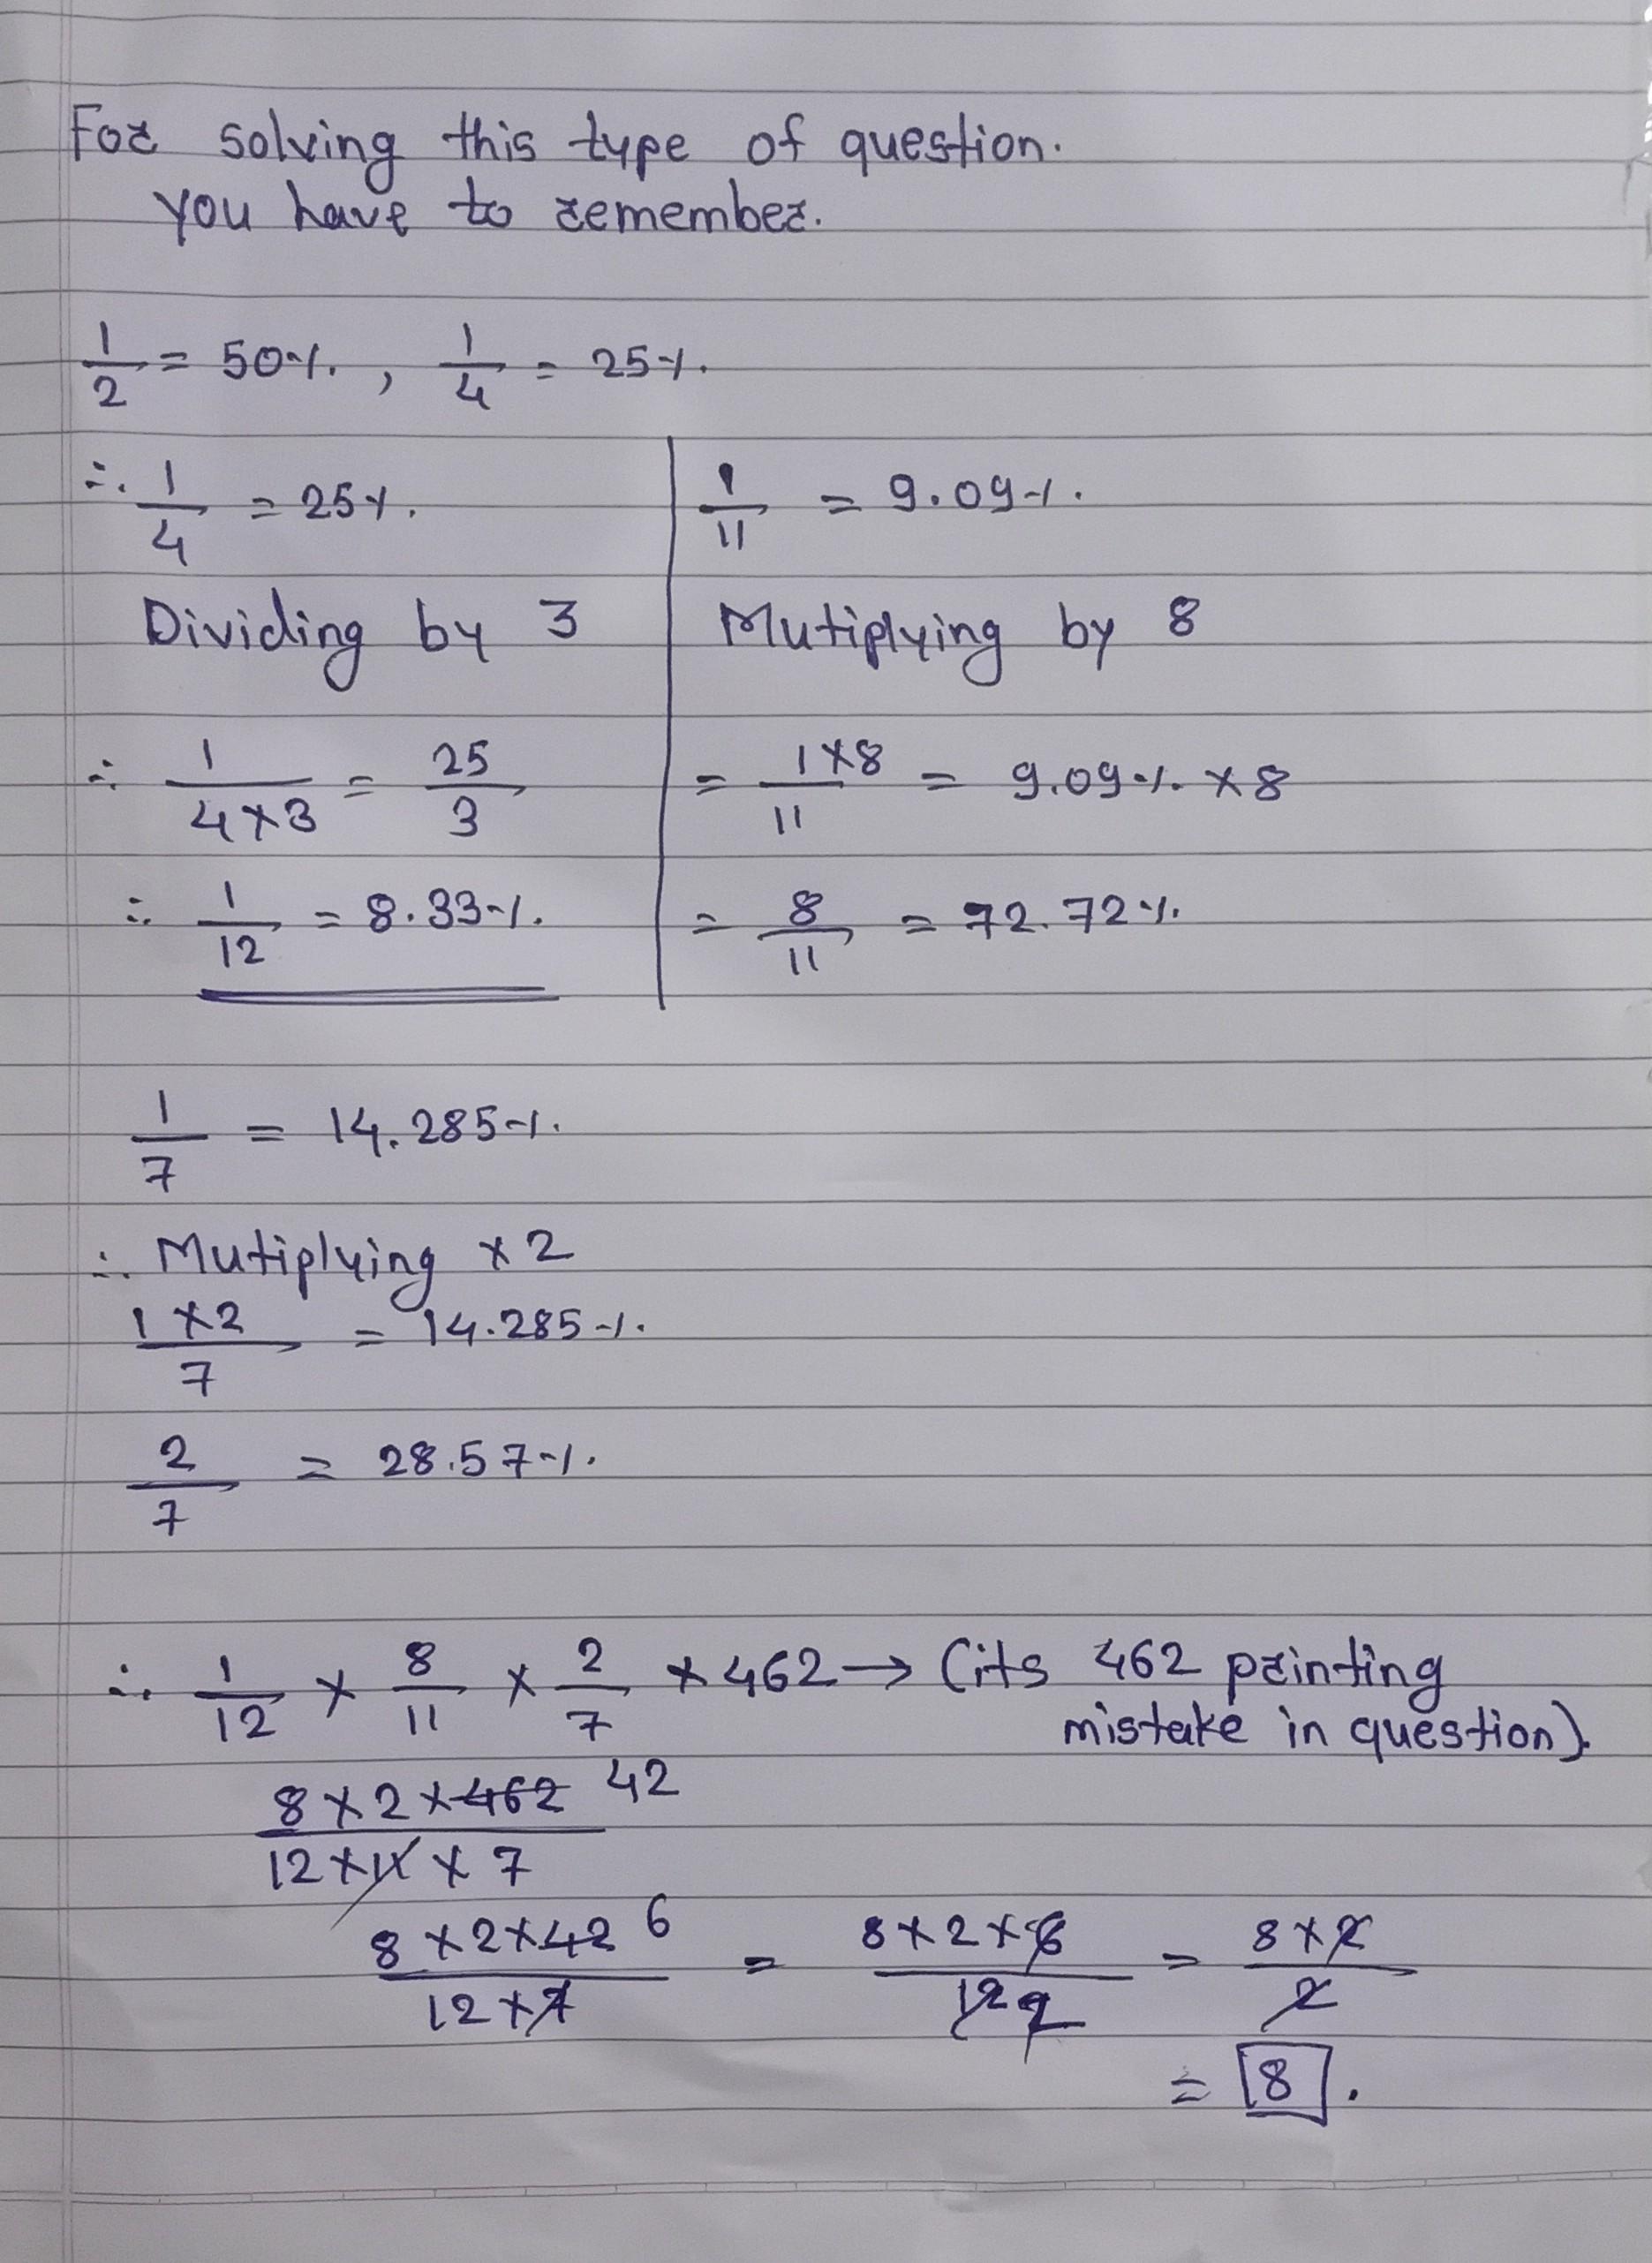 For solving this type of question.
you have to remember.
1/2 = 50%. , 1/4 = 25%.
∴ 1/4 = 25%.
Dividing by 3
∴ 1/(4×3) = 25/3
∴ 1/12 = 8.33%.
1/11 = 9.09%.
Mutiplying by 8
= (1×8)/11 = 9.09%. × 8
= 8/11 = 72.72%.
1/7 = 14.285%.
∴ Mutiplying ×2
(1×2)/7 = 14.285%.
2/7 = 28.57%.
∴ 1/12 × 8/11 × 2/7 × 462 → (its 462 printing
mistake in question).
(8×2×462 42)/(12×11×7)
(8×2×42 6)/(12×7) = (8×2×6)/(12 2) = (8×2)/2
= 8.